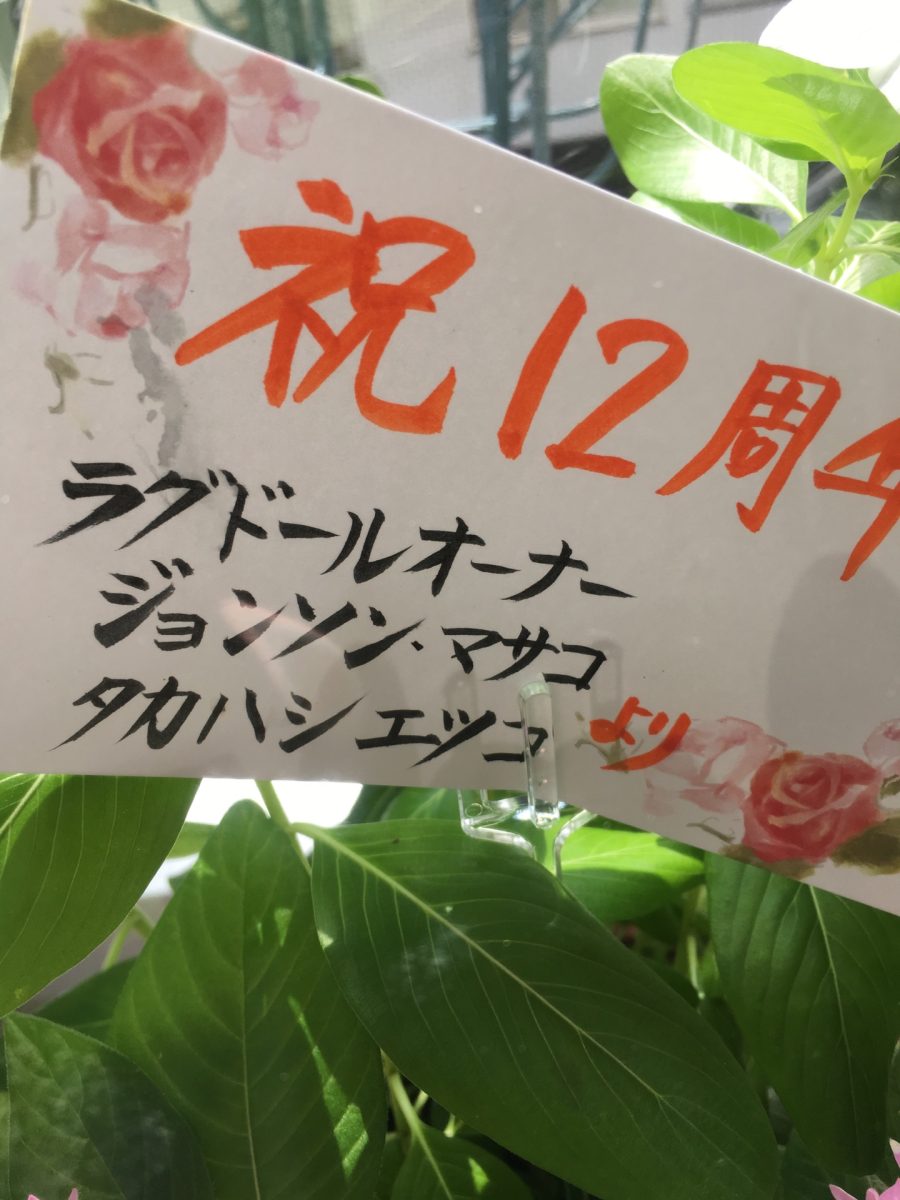 祝12周年
ラグドールオーナー
ジョンソン・マサコ
タカハシエツコ より